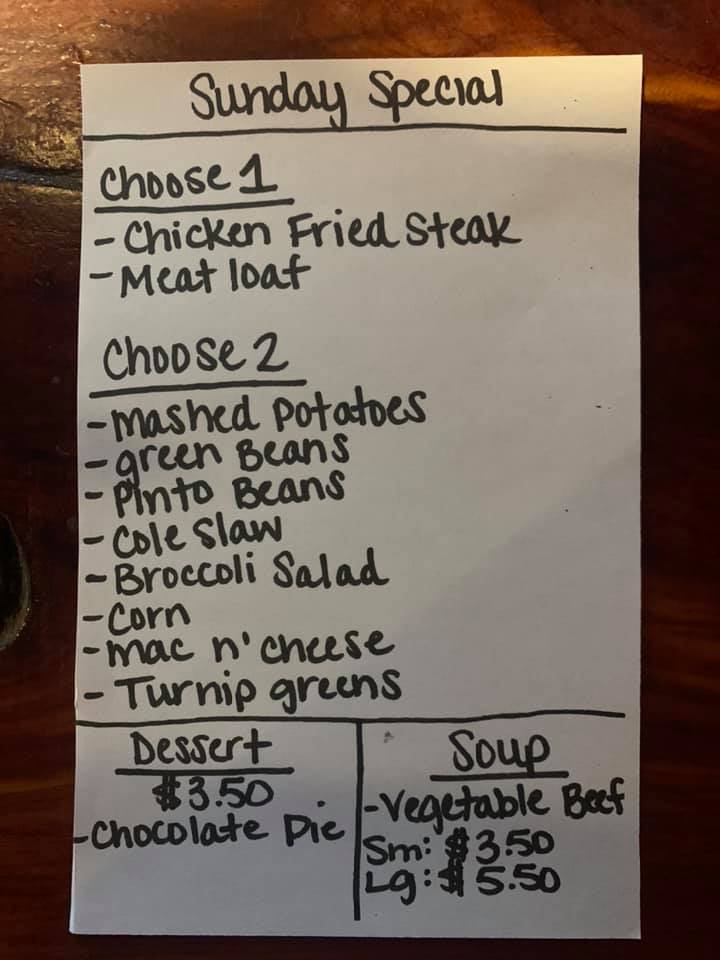 Sunday Special
Choose 1
- Chicken Fried Steak
- Meat loaf
Choose 2
- Mashed Potatoes
- green Beans
- Pinto Beans
- Cole Slaw
- Broccoli Salad
- Corn
- mac n' cheese
- Turnip greens
Dessert
$3.50
- Chocolate Pie
Soup
- Vegetable Beef
Sm: $3.50
Lg: $5.50